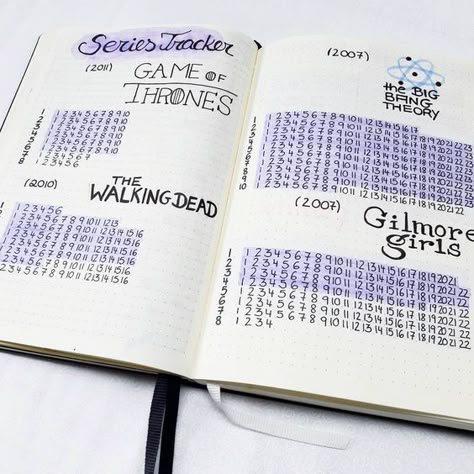 Series Tracker
(2011) GAME OF
THRONES
1 1 2 3 4 5 6 7 8 9 10
2 1 2 3 4 5 6 7 8 9 10
3 1 2 3 4 5 6 7 8 9 10
4 1 2 3 4 5 6 7 8 9 10
5 1 2 3 4 5 6 7 8 9 10
6 1 2 3 4 5 6 7 8 9 10
7 1 2 3 4 5 6 7
8 1 2 3 4 5 6
(2010) THE
WALKING DEAD
1 2 3 4 5 6
1 2 3 4 5 6 7 8 9 10 11 12 13
1 2 3 4 5 6 7 8 9 10 11 12 13 14 15 16
1 2 3 4 5 6 7 8 9 10 11 12 13 14 15 16
1 2 3 4 5 6 7 8 9 10 11 12 13 14 15 16
2 3 4 5 6 7 8 9 10 11 12 13 14 15 16
2 3 4 5 6 7 8 9 10 11 12 13 14 15 16
2 3 4 5 6 7 8 9 10 11 12 13 14 15 16
(2007)
the BIG
BANG
THEORY
1 1 2 3 4 5 6 7 8 9 10 11 12 13 14 15 16 17
2 1 2 3 4 5 6 7 8 9 10 11 12 13 14 15 16 17 18 19 20 21 22 23
3 1 2 3 4 5 6 7 8 9 10 11 12 13 14 15 16 17 18 19 20 21 22 23
4 1 2 3 4 5 6 7 8 9 10 11 12 13 14 15 16 17 18 19 20 21 22
5 1 2 3 4 5 6 7 8 9 10 11 12 13 14 15 16 17 18 19 20 21 22
6 1 2 3 4 5 6 7 8 9 10 11 12 13 14 15 16 17 18 19 20 21 22
7 1 2 3 4 5 6 7 8 9 10 11 12 13 14 15 16 17 18 19 20 21 22
8 1 2 3 4 5 6 7 8 9 10 11 12 13 14 15 16 17 18 19 20 21 22
9 1 2 3 4 5 6 7 8 9 10 11 12 13 14 15 16 17 18 19 20 21 22
10 1 2 3 4 5 6 7 8 9 10 11 12 13 14 15 16 17 18 19 20 21 22
(2007) Gilmore
girls
1 1 2 3 4 5 6 7 8 9 10 11 12 13 14 15 16 17 18 19 20 21
2 1 2 3 4 5 6 7 8 9 10 11 12 13 14 15 16 17 18 19 20 21 22
3 1 2 3 4 5 6 7 8 9 10 11 12 13 14 15 16 17 18 19 20 21 22
4 1 2 3 4 5 6 7 8 9 10 11 12 13 14 15 16 17 18 19 20 21 22
5 1 2 3 4 5 6 7 8 9 10 11 12 13 14 15 16 17 18 19 20 21 22
6 1 2 3 4 5 6 7 8 9 10 11 12 13 14 15 16 17 18 19 20 21 22
7 1 2 3 4 5 6 7 8 9 10 11 12 13 14 15 16 17 18 19 20 21 22
8 1 2 3 4